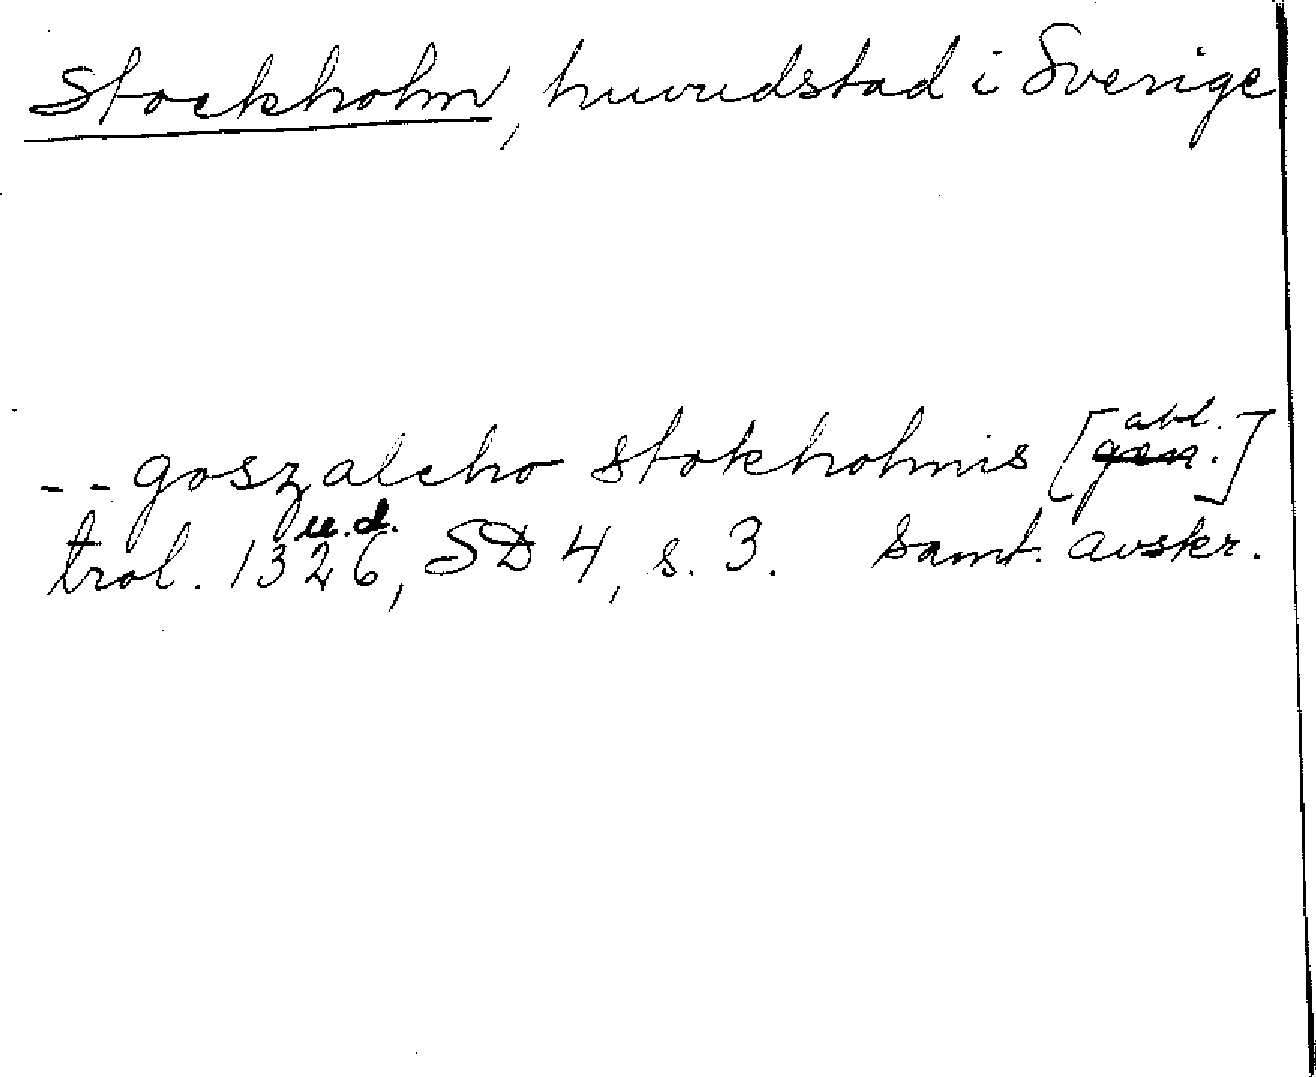 Stockholm, huvudstad i Sverige
- - goszalcho Stokholmis [abl. gen.]
trol. 1326 u.d., SD 4, s. 3. Samt. avskr.